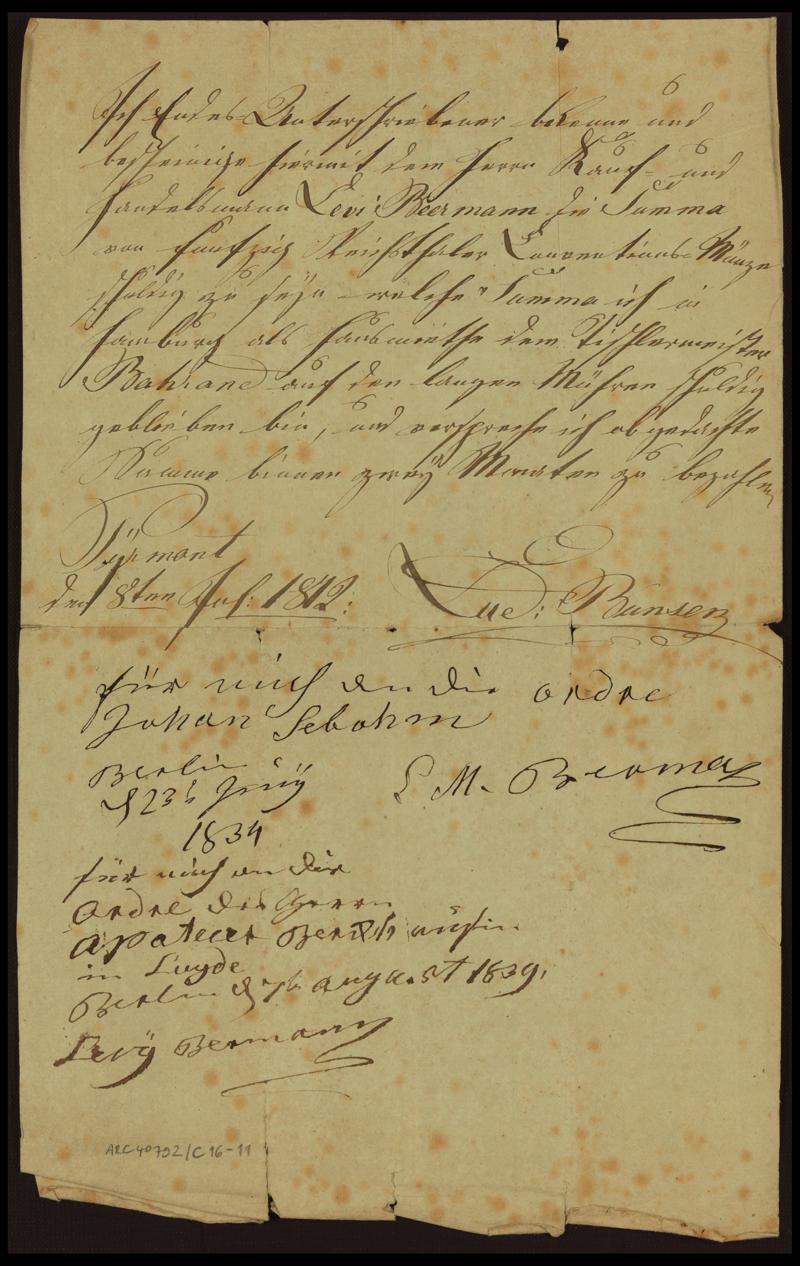 Ich Endes Unterschriebener bekenne und
bescheinige hiermit dem Herrn Kauf- und
Handelsmann Levi Beermann die Summa
von funfzig Reichsthaler Conventions-Münze
schuldig zu seÿn - welche Summa ich in
Hamburg als Hausmiethe dem Tischlermeister
Bahrand auf den langen Mühren schuldig
geblieben bin, und verspreche ich obgedachte
Summe binnen zweÿ Monaten zu bezahlen
Pÿrmont
den 8ten Jul: 1812: Lud: Bunsen
für mich an die ordre
Johan Sebohm
Berlin
d 23t Juny L M. Berman
1834
für mich an die
Ordre des Herrn
apoteker
in Lugde
Berlin d 7t august 1839.
Levÿ Bermann
ARC 40792/C16-11